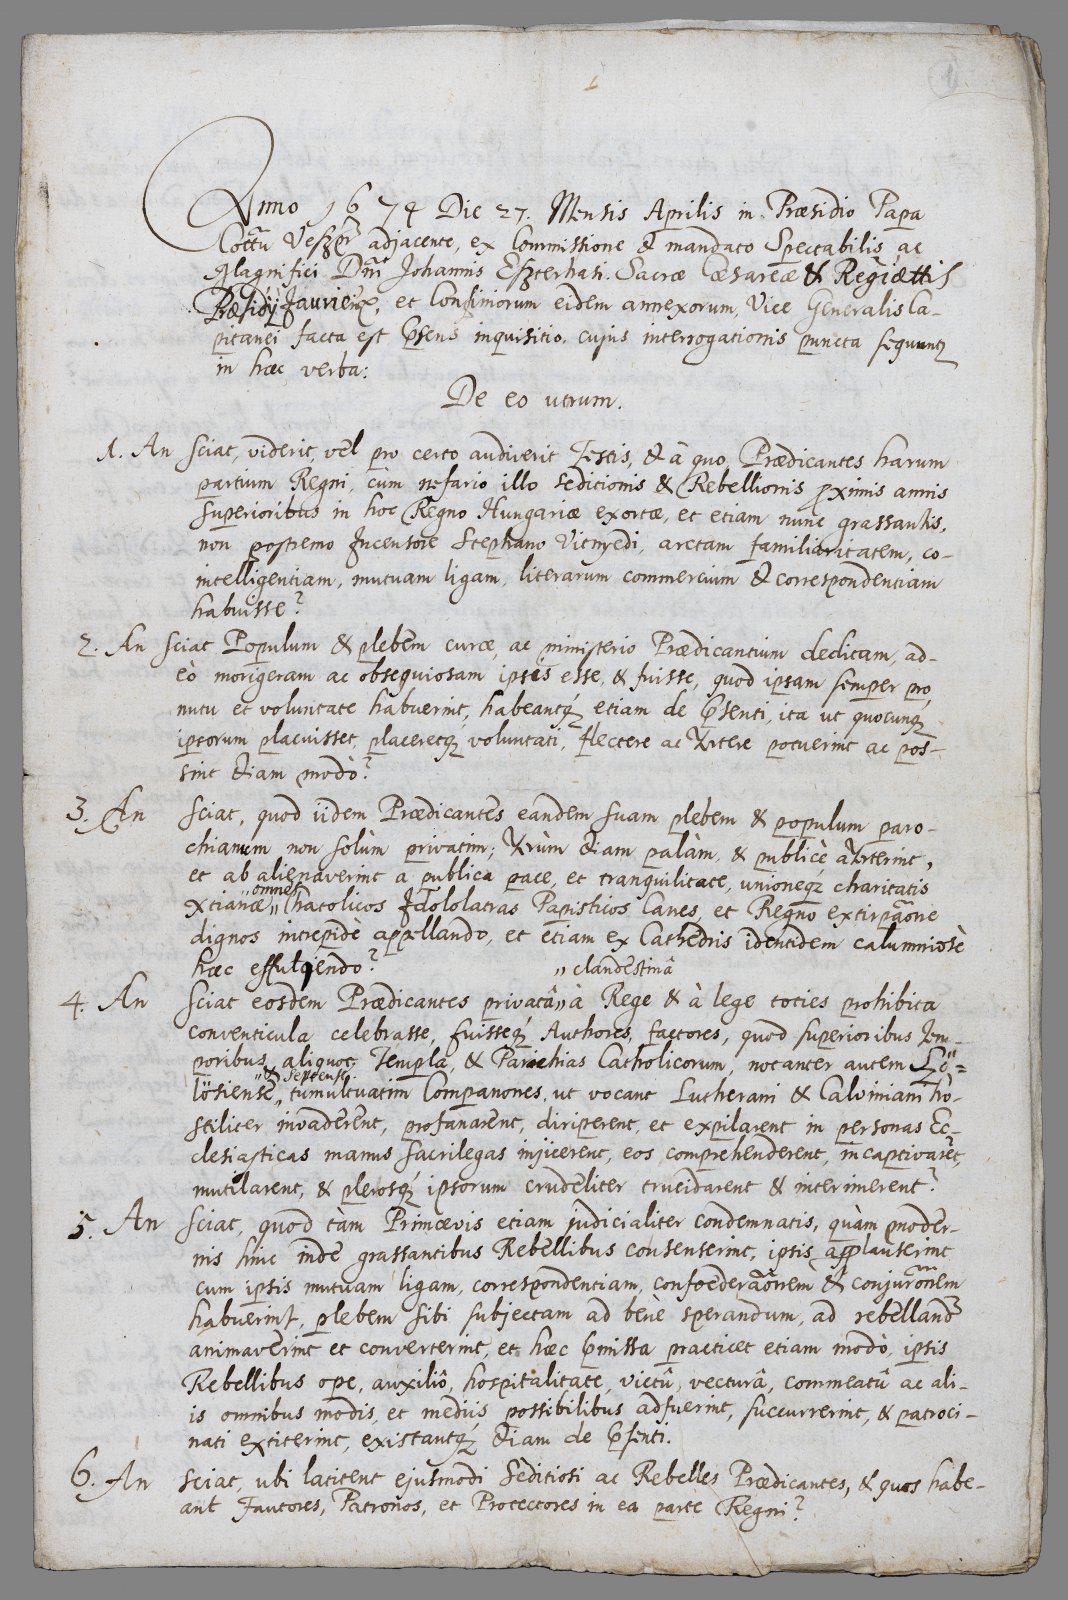 1
Anno 1674 Die 27. Mensis Aprilis in Præsidio Papa
Cottu Veszpr adjacente, ex Commissione & mandato Spectabilis ac
Magnifici Dni Johannis Eszterhasi Sacræ Cæsareæ & Regiættis
Præsidij Jaurien, et Confiniorum eidem annexorum, Vice Generalis Ca-
pitanei facta est psens inquisitio, cujus interrogationis puncta sequuntq
in hæc verba:
De eo utrum.
1. An sciat, viderit, vel pro certo audiverit Testis, & à quo, Prædicantes harum
partium Regni, cùm nefario illo seditionis & Rebellionis pximis annis
superioribus in hoc Regno Hungariæ exortæ, et etiam nunc grassantis,
non postremo Incensore Stephano Vitnyedi, arctam familiaritatem, co-
intelligentiam, mutuam ligam, literarum commercium & correspondentiam
habuisse?
2. An sciat Populum & plebem curæ, ac ministerio Prædicantium deditam, ad-
eò morigeram ac obsequiosam ipsis esse, & fuisse, quod ipsam semper pro
nutu et voluntate habuerint, habeantq etiam de psenti, ita ut quocunq
ipsorum placuisset, placeretq voluntati, flectere ac vrtere potuerint ac pos-
sint etiam modò?
3. An sciat, quod iidem Prædicantes eandem suam plebem & populum paro-
chianum non solùm privatim; vrùm etiam palàm, & publicè avrterint,
et ab alienaverint a publica pace, et tranquilitate, unioneq charitatis
xtianæ „omnes„ Chatolicos Idololatras Papisticos Canes, et Regno extirpaone
dignos intrepidè appellando, et etiam ex Cathedris identidem calumniosè
hæc effutiendo?
4. An sciat eosdem Prædicantes privatâ „clandestinâ„ à Rege & à lege toties prohibita
conventicula celebrasse, fuisseq Authores, factores, quod superioribus Tem-
poribus aliquot Templa, & Parochias Catholicorum, notanter autem Szö-
lösiense „& Septense„ tumultuatim Companones, ut vocant Lutherani & Calviniani ho-
stiliter invaderent, profanarent, diriperent, et expilarent in personas Ec-
clesiasticas manus sacrilegas injicerent, eos comprehenderent, incaptivaret,
mutilarent, & plerosq ipsorum crudeliter trucidarent & interimerent?
5. An sciat, quod tàm Primævis etiam judicialiter condemnatis, quàm moder-
nis hinc inde grassantibus Rebellibus consenserint, ipsis applauserint
cum ipsis mutuam ligam, correspondentiam, confoederaonem & conjuraonem
habuerint, plebem sibi subjectam ad benè sperandum, ad rebelland
animaverint et converterint, et hæc pmissa practicet etiam modò, ipsis
Rebellibus ope, auxiliô, hospitalitate, victû, vecturâ, commeatû ac ali-
is omnibus modis, et mediis possibilibus adfuerint, succurrerint, & patroci-
nati extiterint, existantq etiam de psenti.
6. An sciat, ubi latitent ejusmodi Seditiosi ac Rebelles Prædicantes, & quos habe-
ant Fautores, Patronos, et Protectores in ea parte Regni?